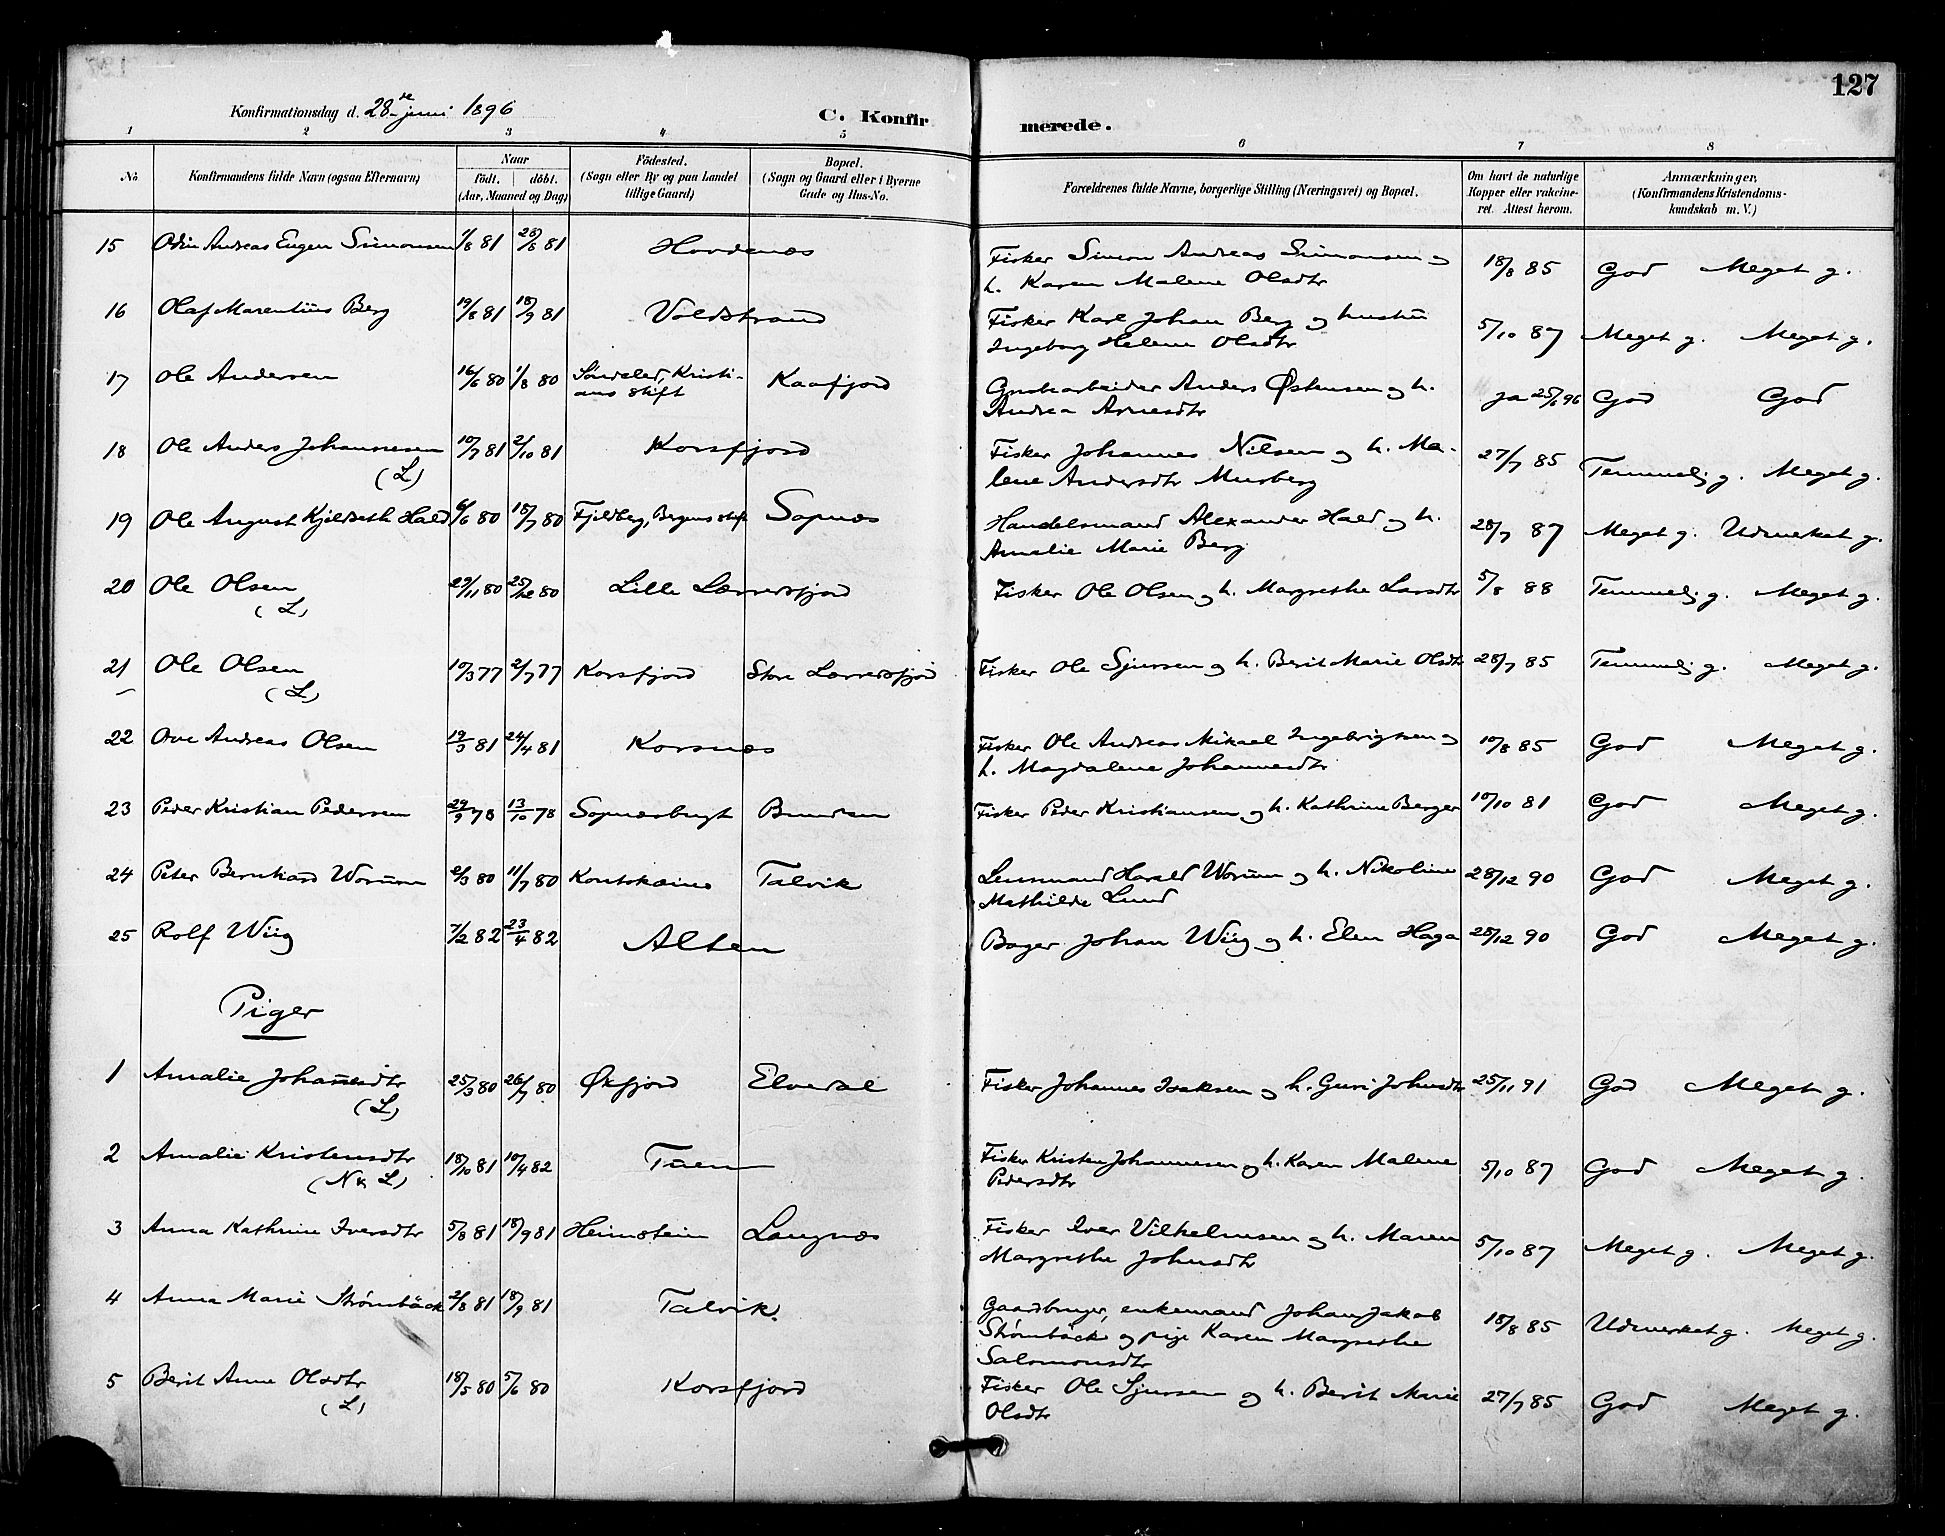 127
Konfirmationsdag d. 28de juni 1896
C. Konfirmerede.
1 2 3 4 5 6 7 8
No
Konfirmandens fulde Navn (ogsaa Efternavn)
Naar
födt. döbt.
(Aar, Maaned og Dag)
Födested.
(Sogn eller By og paa Landet
tillige Gaard)
Bopæl.
(Sogn og Gaard eller i Byerne
Gade og Hus-No.
Forældrenes fulde Navne, borgerlige Stilling (Næringsvei) og Bopæl.
Om havt de naturlige
Kopper eller vakcine-
ret. Attest herom.
Anmærkninger,
(Konfirmandens Kristendoms-
kundskab m. V.)
15 Odin Andreas Eugen Simonsen 1/8 81 28/8 81 Fisker Simon Andreas Simonsen og 18/8 85 God Meget g.
h. Karen Malene Olsdtr
16 Olaf Marentius Berg 19/8 81 18/9 81 Voldstrand Fisker Karl Johan Berg og hustru 5/10 87 Meget g. Meget g.
Ingeborg Helene Olsdtr
17 Ole Andersen 16/6 80 1/8 80 Söndeled, Kristi- Kaafjord Anders Østensen og h. ja 25/6 96 God God
ans stift Andrea Arnesdtr
18 Ole Anders Johannesen 10/7 81 2/10 81 Korsfjord Fisker Johannes Nilsen og h. Ma- 27/7 85 Temmelig g. Meget g.
(L) lene Andersdtr Murberg
19 Ole August Kjeldseth Hald 6/6 80 18/7 80 Fjeldberg, Bergens stift Sopnæs Handelsmand Alexander Hald og h. 28/7 87 Meget g. Udmerket g.
Amalie Marie Berg
20 Ole Olsen 29/11 80 25/12 80 Lille Lerresfjord Fisker Ole Olsen og h. Margrethe Larsdtr 5/8 88 Temmelig g. Meget g.
(L)
21 Ole Olsen 10/3 77 2/7 77 Korsfjord Store Lerresfjord Fisker Ole Sjursen og h. Berit Marie Olsdtr 28/7 85 Temmelig g. Meget g.
(L)
22 Ove Andreas Olsen 19/3 81 24/4 81 Korsnæs Fisker Ole Andreas Mikael Ingebrigtsen og 10/8 85 God Meget g.
h. Magdalene Johannesdtr
23 Peder Kristian Pedersen 29/9 78 13/10 78 Sopnæsbugt Fisker Peder Kristiansen og h. Kathrine Berger 10/10 81 God Meget g.
24 Peter Bernhard Worum 2/3 80 11/7 80 Koutokæino Talvik Lensmand Harald Worum og h. Nikoline 28/12 90 God Meget g.
Mathilde Lund
25 Rolf Wiig 7/2 82 23/4 82 Alten Bager Johan Wiig og h. Elen Haga 28/12 90 God Meget g.
Piger
1 Amalie Johannesdtr 25/3 80 26/7 80 Øxfjord Elvedal Fisker Johannes Isaksen og h. Guri Johnsdtr 25/11 91 God Meget g.
(L)
2 Amalie Kristensdtr 18/10 81 10/4 82 Tuen Fisker Kristen Johannesen og h. Karen Malene 5/10 87 God Meget g.
(N & L) Pedersdtr
3 Anna Kathrine Iversdtr 5/8 81 18/9 81 Heimstein Langnæs Fisker Iver Vilhelmsen og h. Maren 5/10 87 Meget g. Meget g.
Margrethe Johnsdtr
4 Anna Marie Strömbäck 2/8 81 18/9 81 Talvik. Gaardbruger, enkemand Johan Jakob 18/8 85 Udmerket g. Meget g.
Strömbäck og pige Karen Margrethe
Salomonsdtr
5 Berit Anne Olsdtr 18/5 80 5/6 80 Korsfjord Fisker Ole Sjursen og h. Berit Marie 27/7 85 God Meget g.
(L) Olsdtr